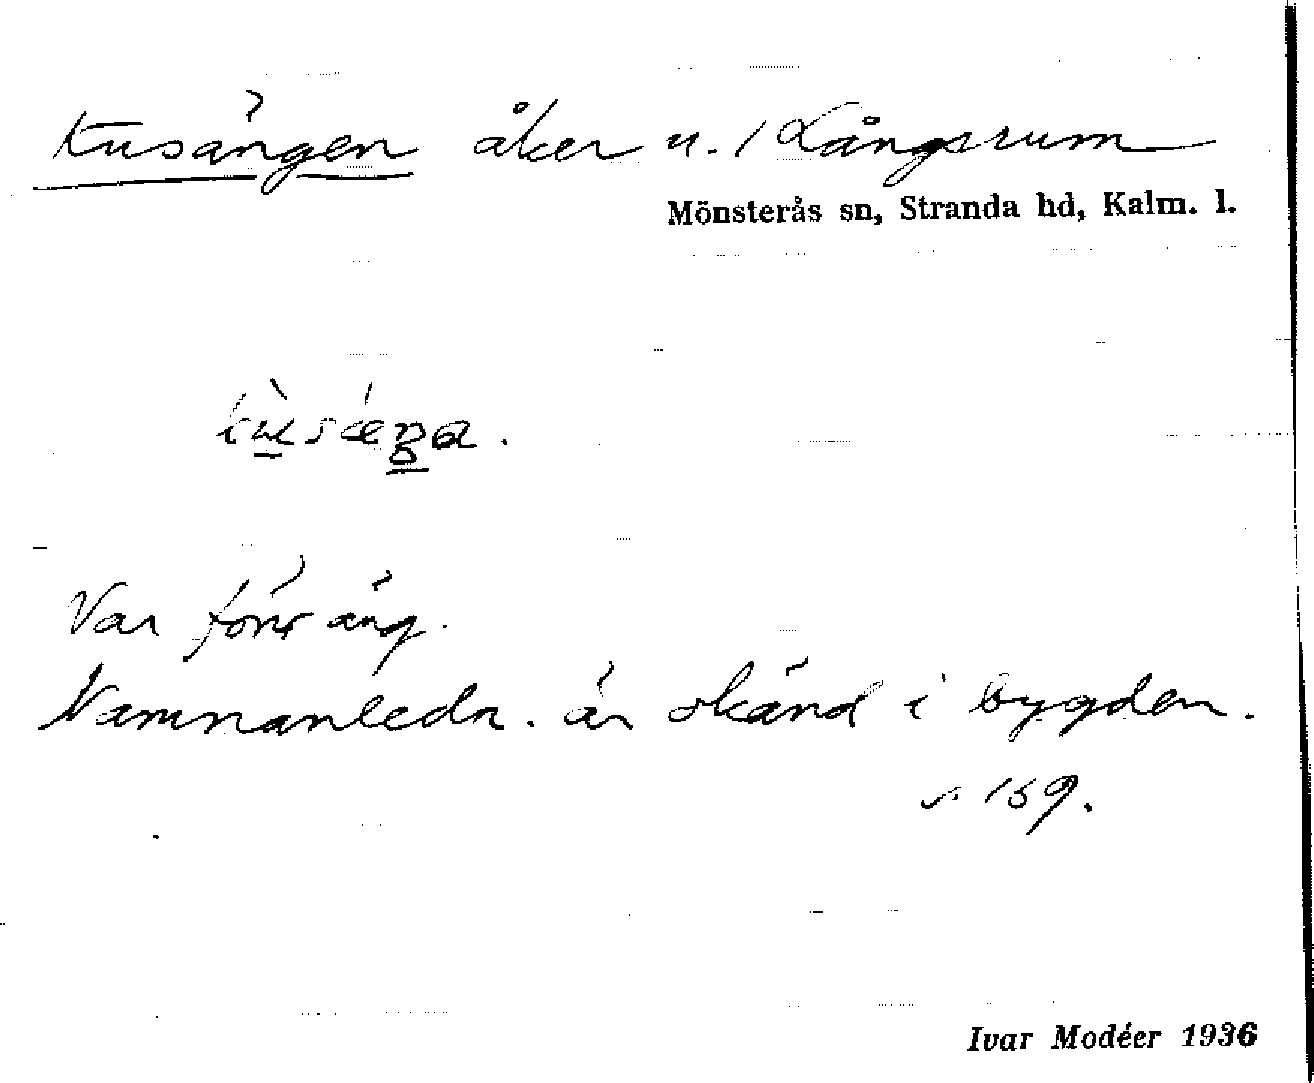 Kusängen åker u. / Långsrum
Mönsterås sn, Stranda hd, Kalm. l.
kùsæŋa.
Var förr äng.
Namnanledn. är okänd i bygden.
s. 159.
Ivar Modéer 1936